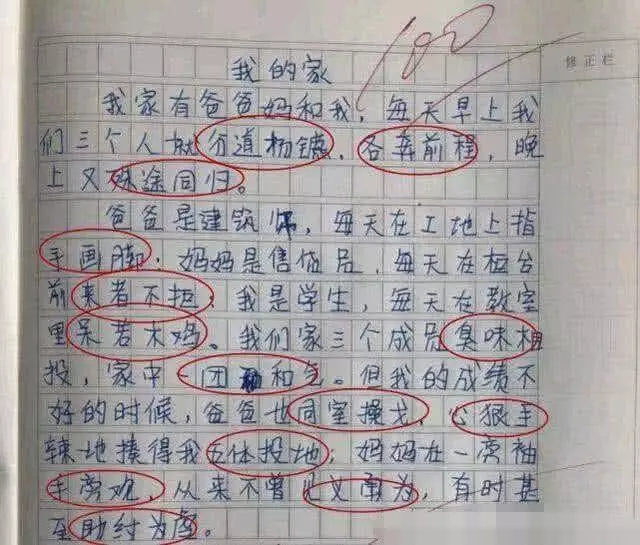 100
修正栏
我的家
我家有爸爸妈和我，每天早上我
们三个人就分道扬镳，各奔前程，晚
上又殊途同归。
爸爸是建筑师，每天在工地上指
手画脚；妈妈是售货员，每天在柜台
前来者不拒；我是学生，每天在教室
里呆若木鸡。我们家三个成员臭味相
投，家中一团和气。但我的成绩不
好的时候，爸爸也同室操戈，心狠手
辣地揍得我五体投地；妈妈在一旁袖
手旁观，从来不曾见义勇为，有时甚
至助纣为虐。